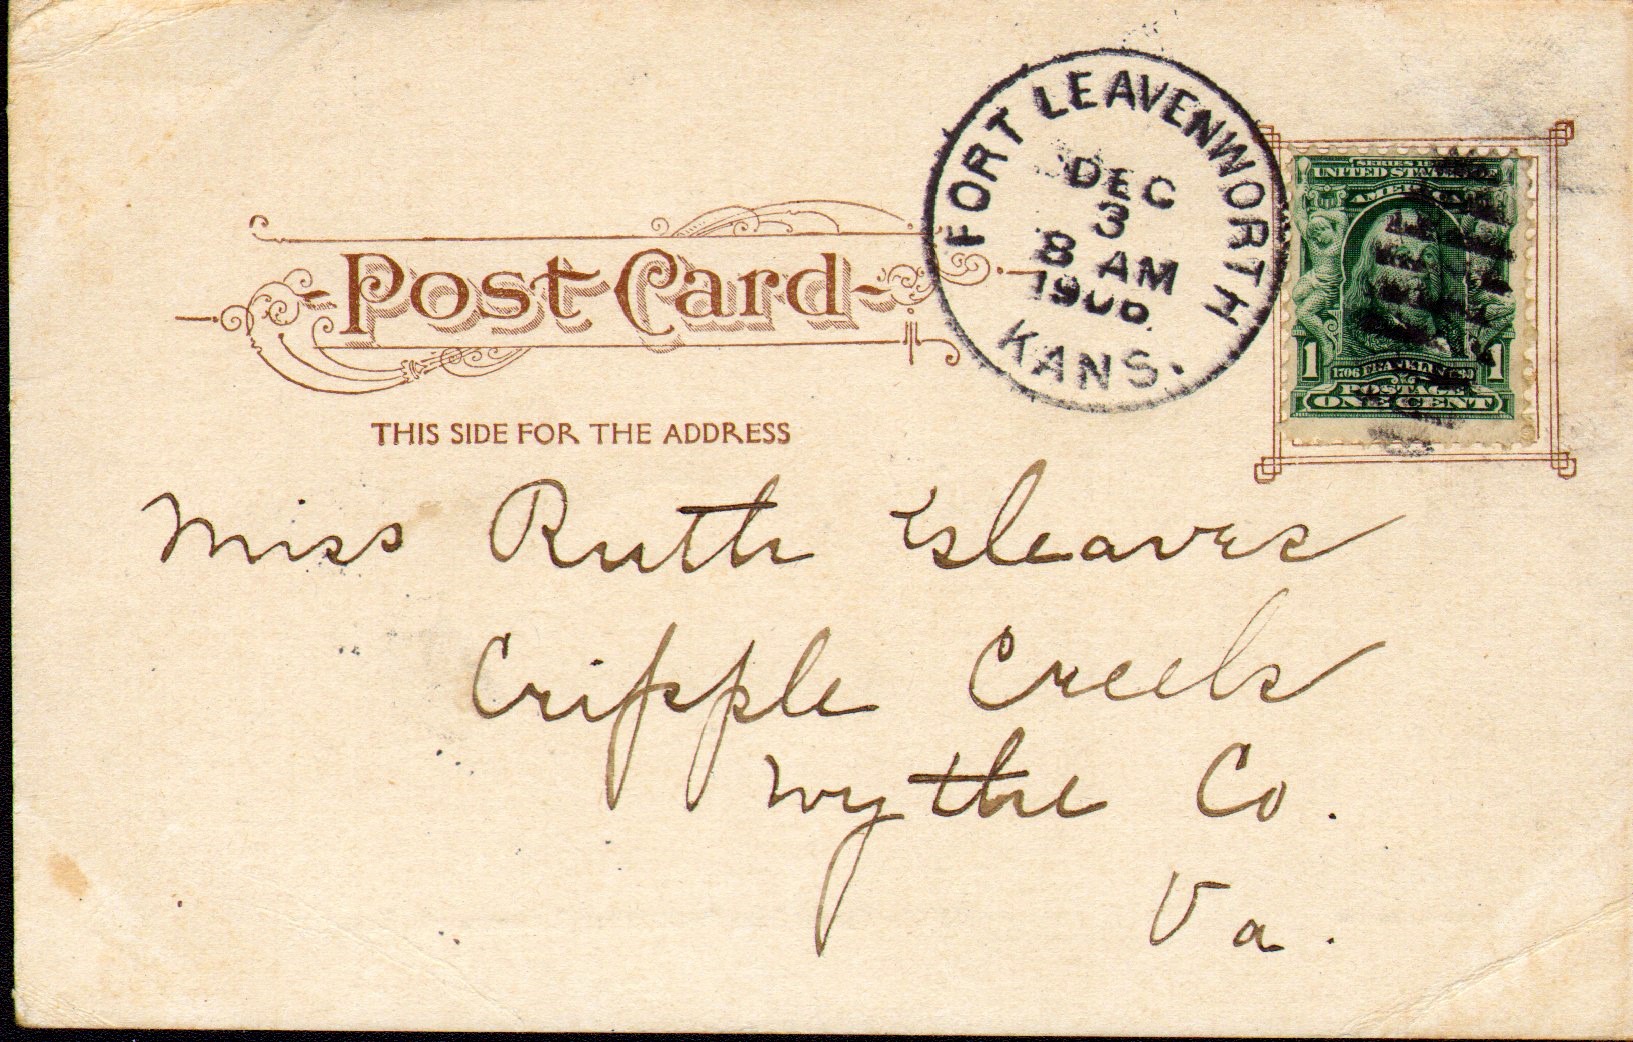 Post Card
THIS SIDE FOR THE ADDRESS
FORT LEAVENWORTH
DEC
3
8 AM
1906
KANS.
UNITED STATES
1 1706 FRANKLIN 1
POSTAGE
ONE CENT
Miss Ruth Gleaves
Cripple Creek
Wythe Co.
Va.